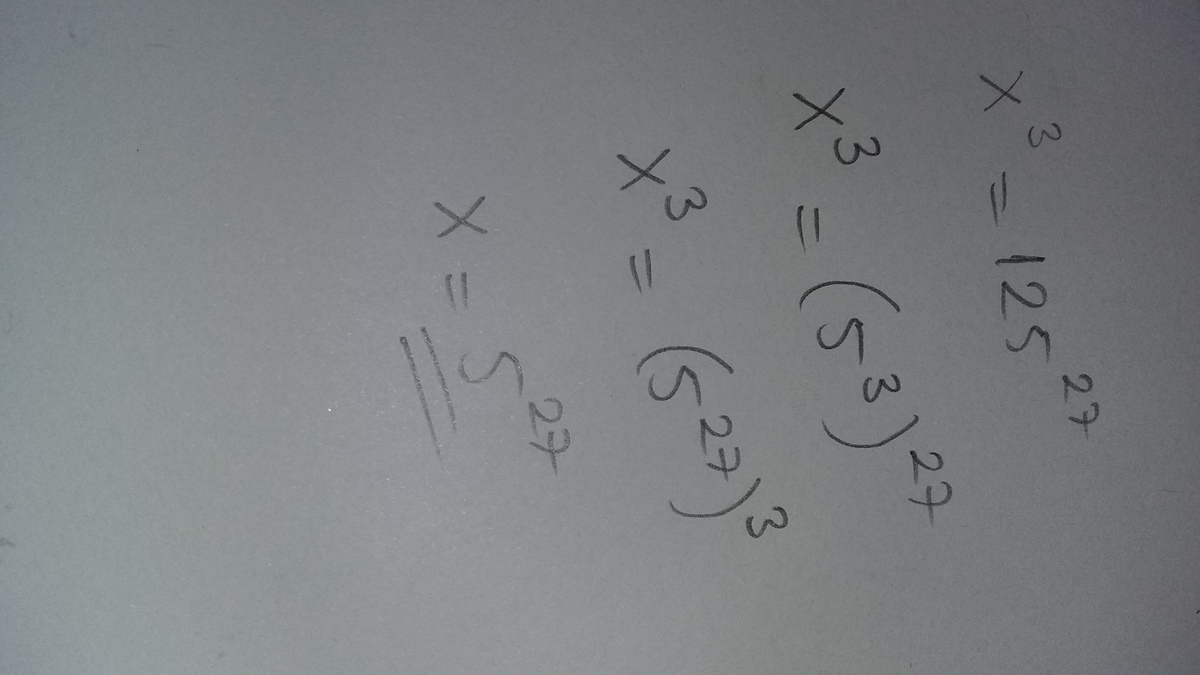 x³ = 125²⁷
x³ = (5³)²⁷
x³ = (5²⁷)³
x = 5²⁷